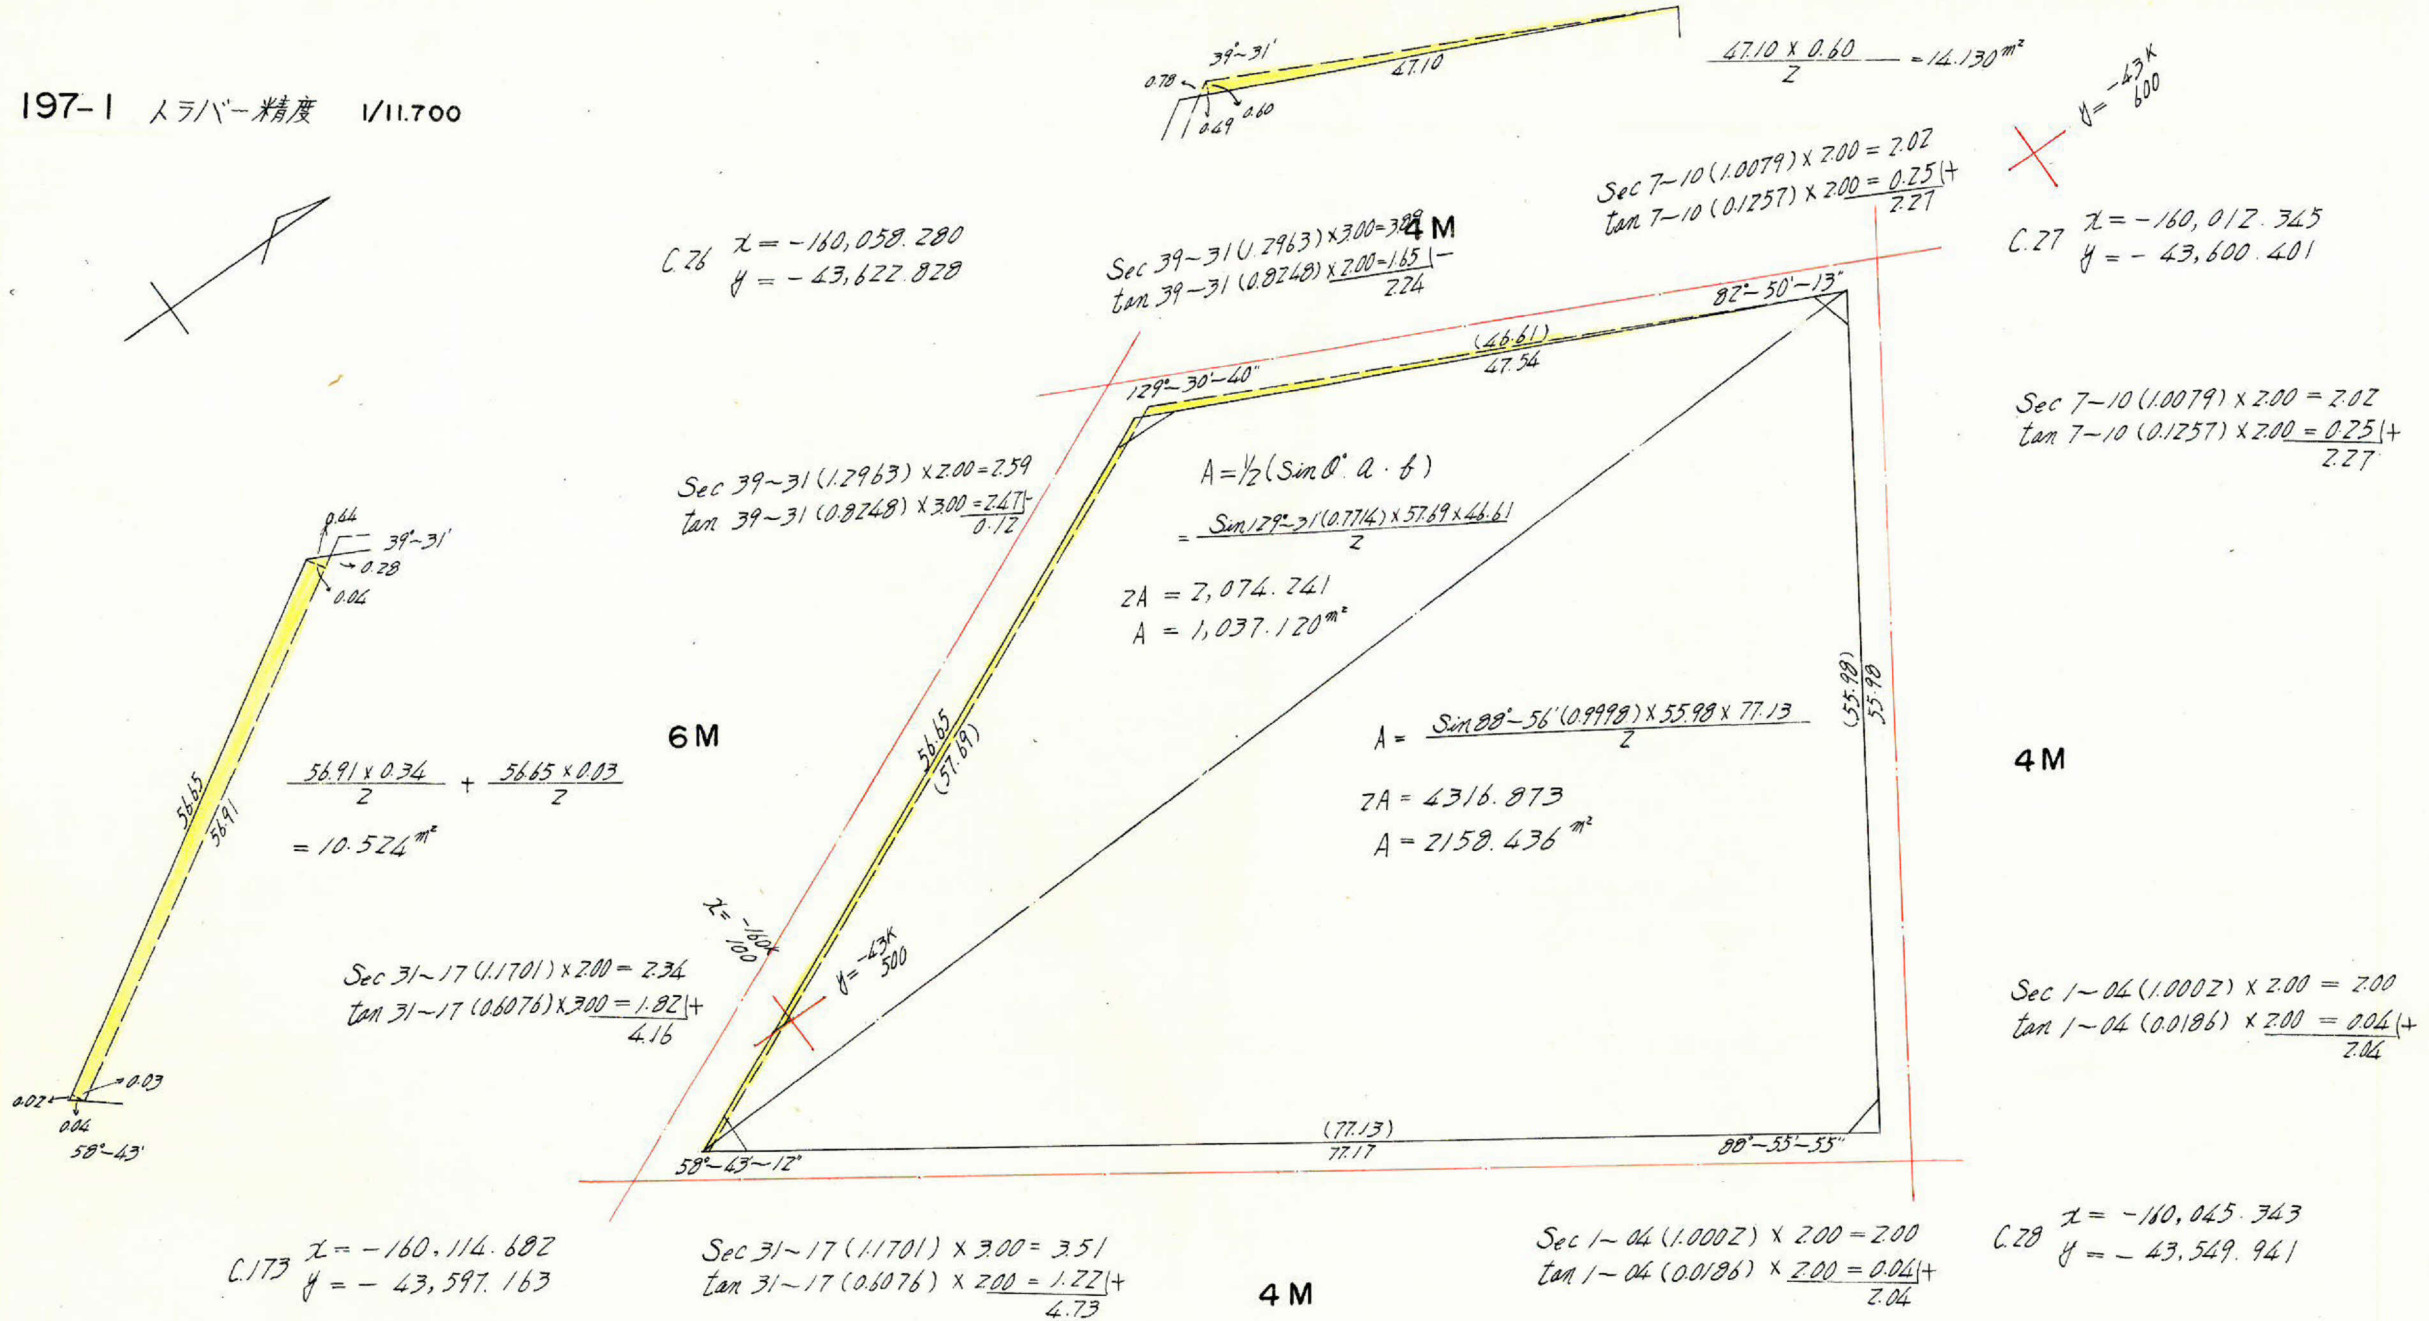 197-1 トラバー精度 1/11.700
39°~31'
0.78
47.10
0.49
0.60
47.10 x 0.60 / 2 = 14.130m²
y= -43K 600
C.26 x = -160,058.280
y = -43,622.828
Sec 39~31 (1.2963) x 3.00 = 3.89
tan 39~31 (0.8248) x 2.00 = 1.65 (-
2.24
4M
Sec 7~10 (1.0079) x 2.00 = 2.02
tan 7~10 (0.1257) x 2.00 = 0.25 (+
2.27
C.27 x = -160,012.345
y = -43,600.401
82°-50'-13"
129°-30'-40"
(46.61)
47.54
Sec 7~10 (1.0079) x 2.00 = 2.02
tan 7~10 (0.1257) x 2.00 = 0.25 (+
2.27
Sec 39~31 (1.2963) x 2.00 = 2.59
tan 39~31 (0.8248) x 3.00 = 2.47 (-
0.12
A = 1/2 (Sin θ° a · b)
= Sin 129°-31' (0.7714) x 57.69 x 46.61 / 2
2A = 2,074.241
A = 1,037.120m²
0.44
39°~31'
0.28
0.04
56.65
56.91
56.91 x 0.34 / 2 + 56.65 x 0.03 / 2
= 10.524m²
6M
56.65
(57.69)
(55.98)
55.98
A = Sin 88°-56' (0.9998) x 55.98 x 77.13 / 2
2A = 4316.873
A = 2158.436m²
4M
x= -160K 100
y= -43K 500
Sec 31~17 (1.1701) x 2.00 = 2.34
tan 31~17 (0.6076) x 3.00 = 1.82 (+
4.16
Sec 1~04 (1.0002) x 2.00 = 2.00
tan 1~04 (0.0186) x 2.00 = 0.04 (+
2.04
0.03
0.02
0.04
58°-43'
58°-43'-12"
(77.13)
77.17
88°-55'-55"
C.173 x = -160,114.682
y = -43,597.163
Sec 31~17 (1.1701) x 3.00 = 3.51
tan 31~17 (0.6076) x 2.00 = 1.22 (+
4.73
4M
Sec 1~04 (1.0002) x 2.00 = 2.00
tan 1~04 (0.0186) x 2.00 = 0.04 (+
2.04
C.28 x = -160,045.343
y = -43,549.941